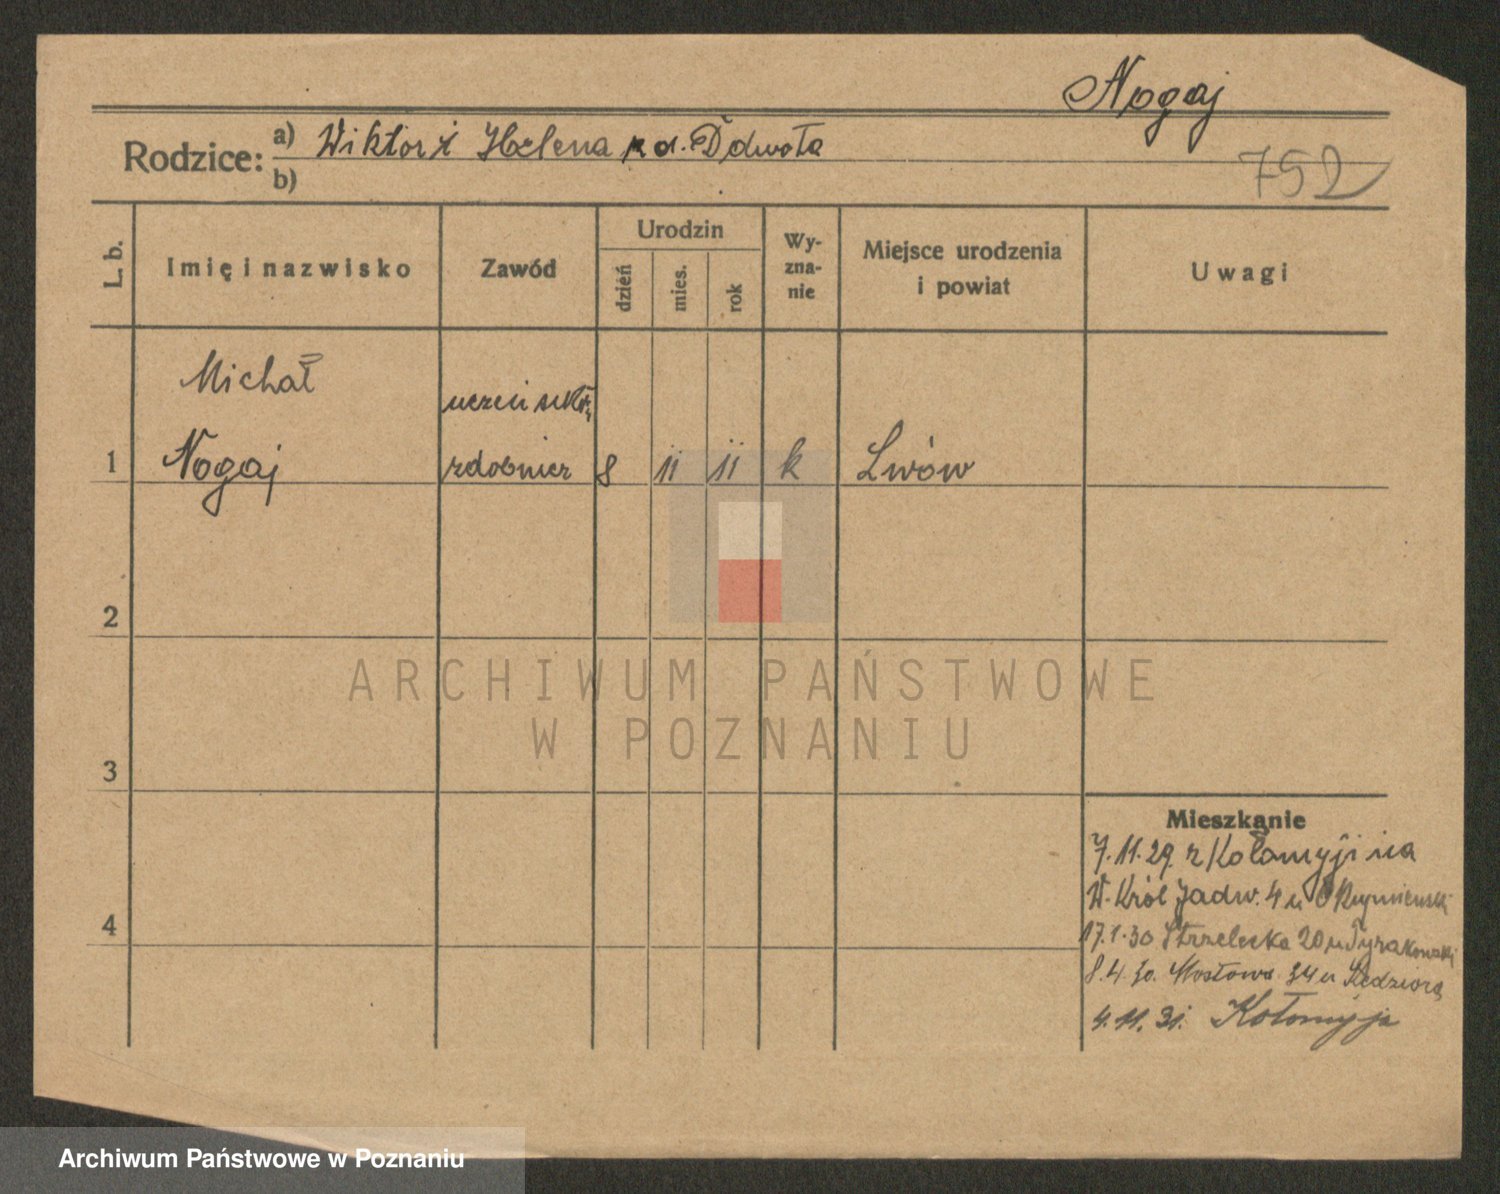 Nogaj
Rodzice: a) Wiktor i Helena z d.
b)
752
L. b.
Imię i nazwisko
Zawód
Urodzin
dzień
mies.
rok
Wy-
zna-
nie
Miejsce urodzenia
i powiat
Uwagi
Michał
uczeń szkoły
1 Nogaj zdobnicz 8 11 11 k Lwów
2
3
4
ARCHIWUM PAŃSTWOWE
W POZNANIU
Mieszkanie
7.11.29. z Kołomyji na
W. Król Jadw. 4 u
17.1.30 Strzelecka 20 u Tyrakowski
8.4.30. Mostowa 34 u Kędziora
4.11.31. Kołomyja
Archiwum Państwowe w Poznaniu